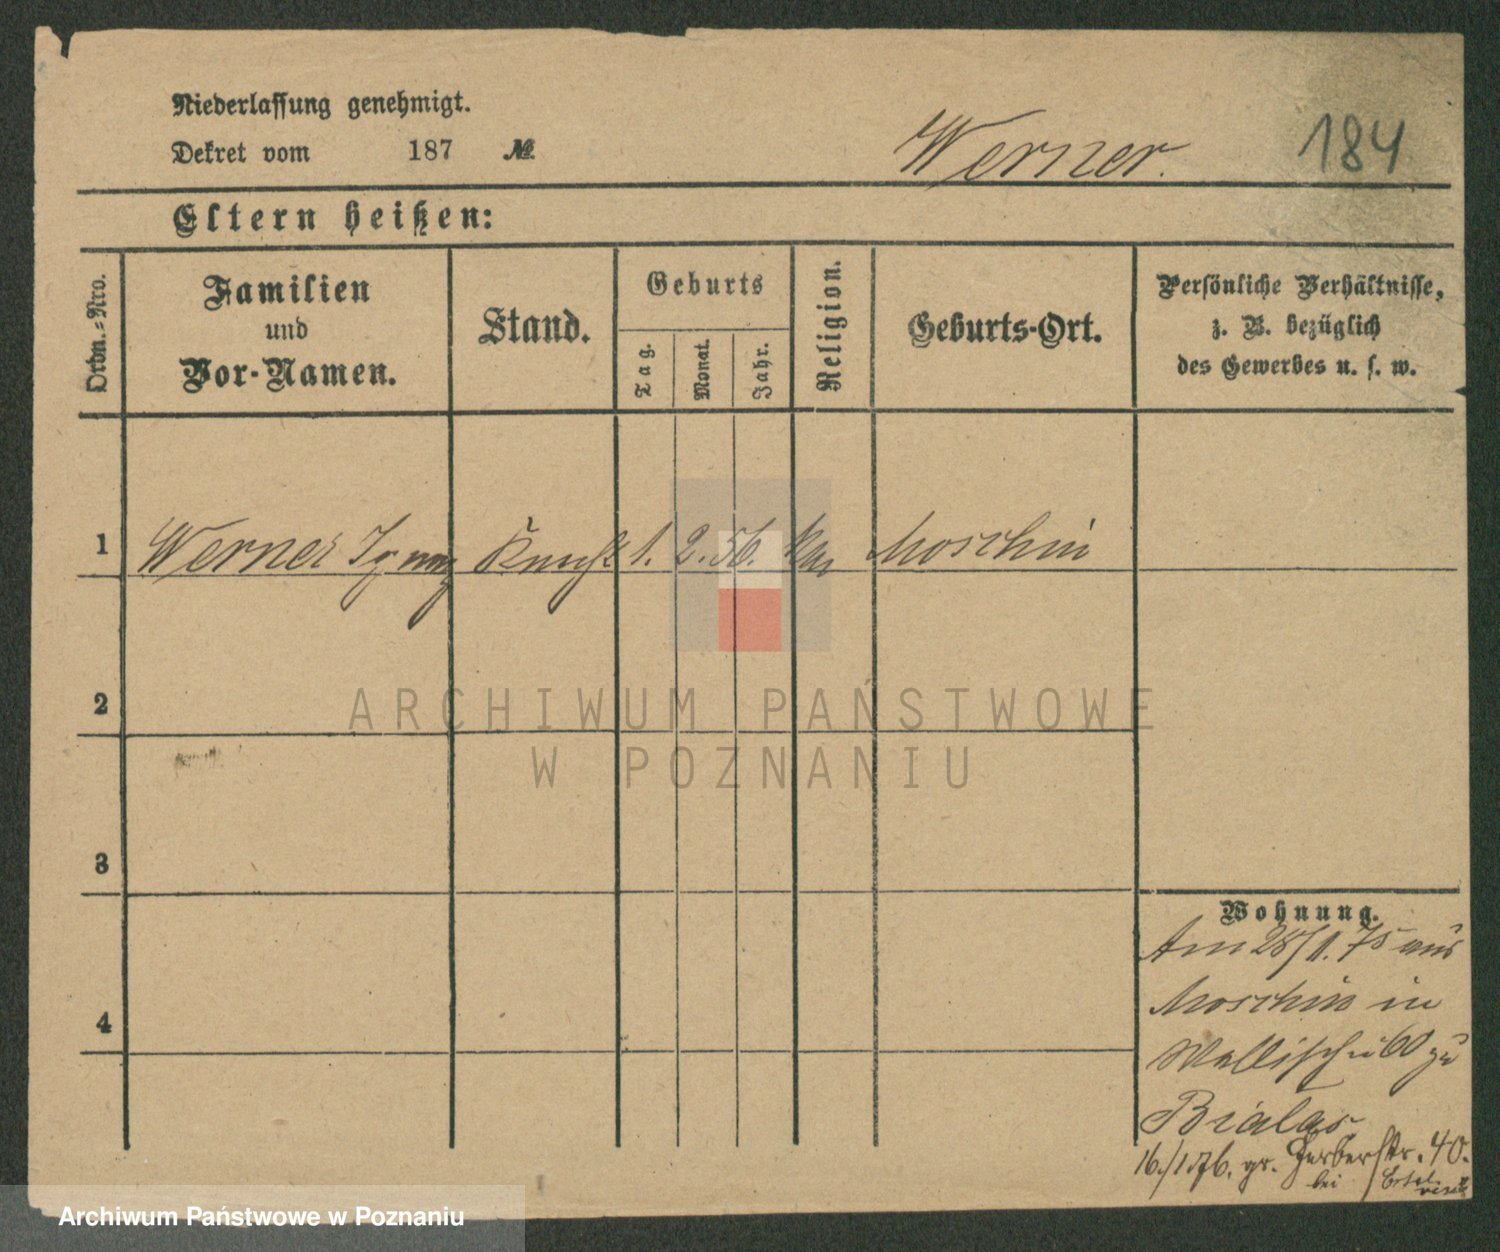 Niederlassung genehmigt.
Dekret vom 187 №
Werner.
184
Eltern heißen:
Ordn.=Nro.
Familien
und
Vor-Namen.
Stand.
Geburts
Tag.
Monat.
Jahr.
Religion.
Geburts-Ort.
Persönliche Verhältnisse,
z. B. bezüglich
des Gewerbes u. s. w.
1 Werner Ignaz Knecht 1. 2. 56. Moschin
2
3
4
ARCHIWUM PAŃSTWOWE
W POZNANIU
Wohnung.
Am 28/1. 75 aus
Moschin in
Wallischei 60 zu
Bialas
16./1 76. gr. Gerberstr. 40.
bei
Archiwum Państwowe w Poznaniu